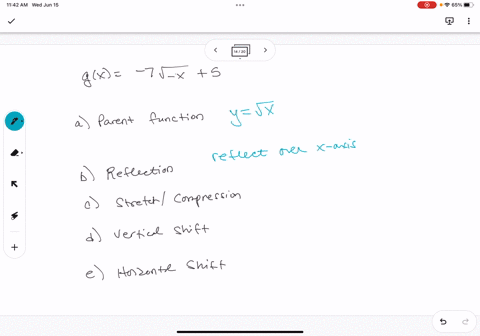 11:42 AM Wed Jun 15
65%
14 / 20
g(x) = -7√-x + 5
a) Parent function y=√x
reflect over x-axis
b) Reflection
c) Stretch/Compression
d) Vertical Shift
e) Horizontal Shift